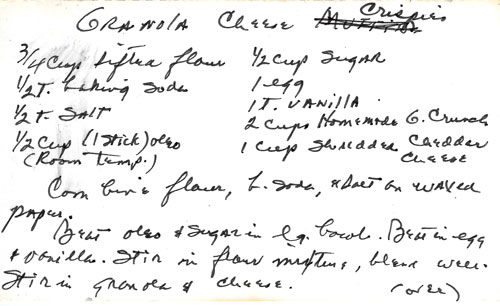 GRANOLA CHEESE Crispies
3/4 Cup Sifted flour 1/2 Cup Sugar
1/2 t. baking soda 1 egg
1/2 t. SALT 1 T. VANILLA
1/2 Cup (1 Stick) oleo 2 Cups Homemade G. Crunch
(Room Temp.) 1 Cup Shredded Cheddar Cheese
Combine flour, b. soda, & salt on waxed
paper.
Beat oleo & sugar in lg. bowl. Beat in egg
& vanilla. Stir in flour mixture, blend well.
Stir in granola & cheese. (over)